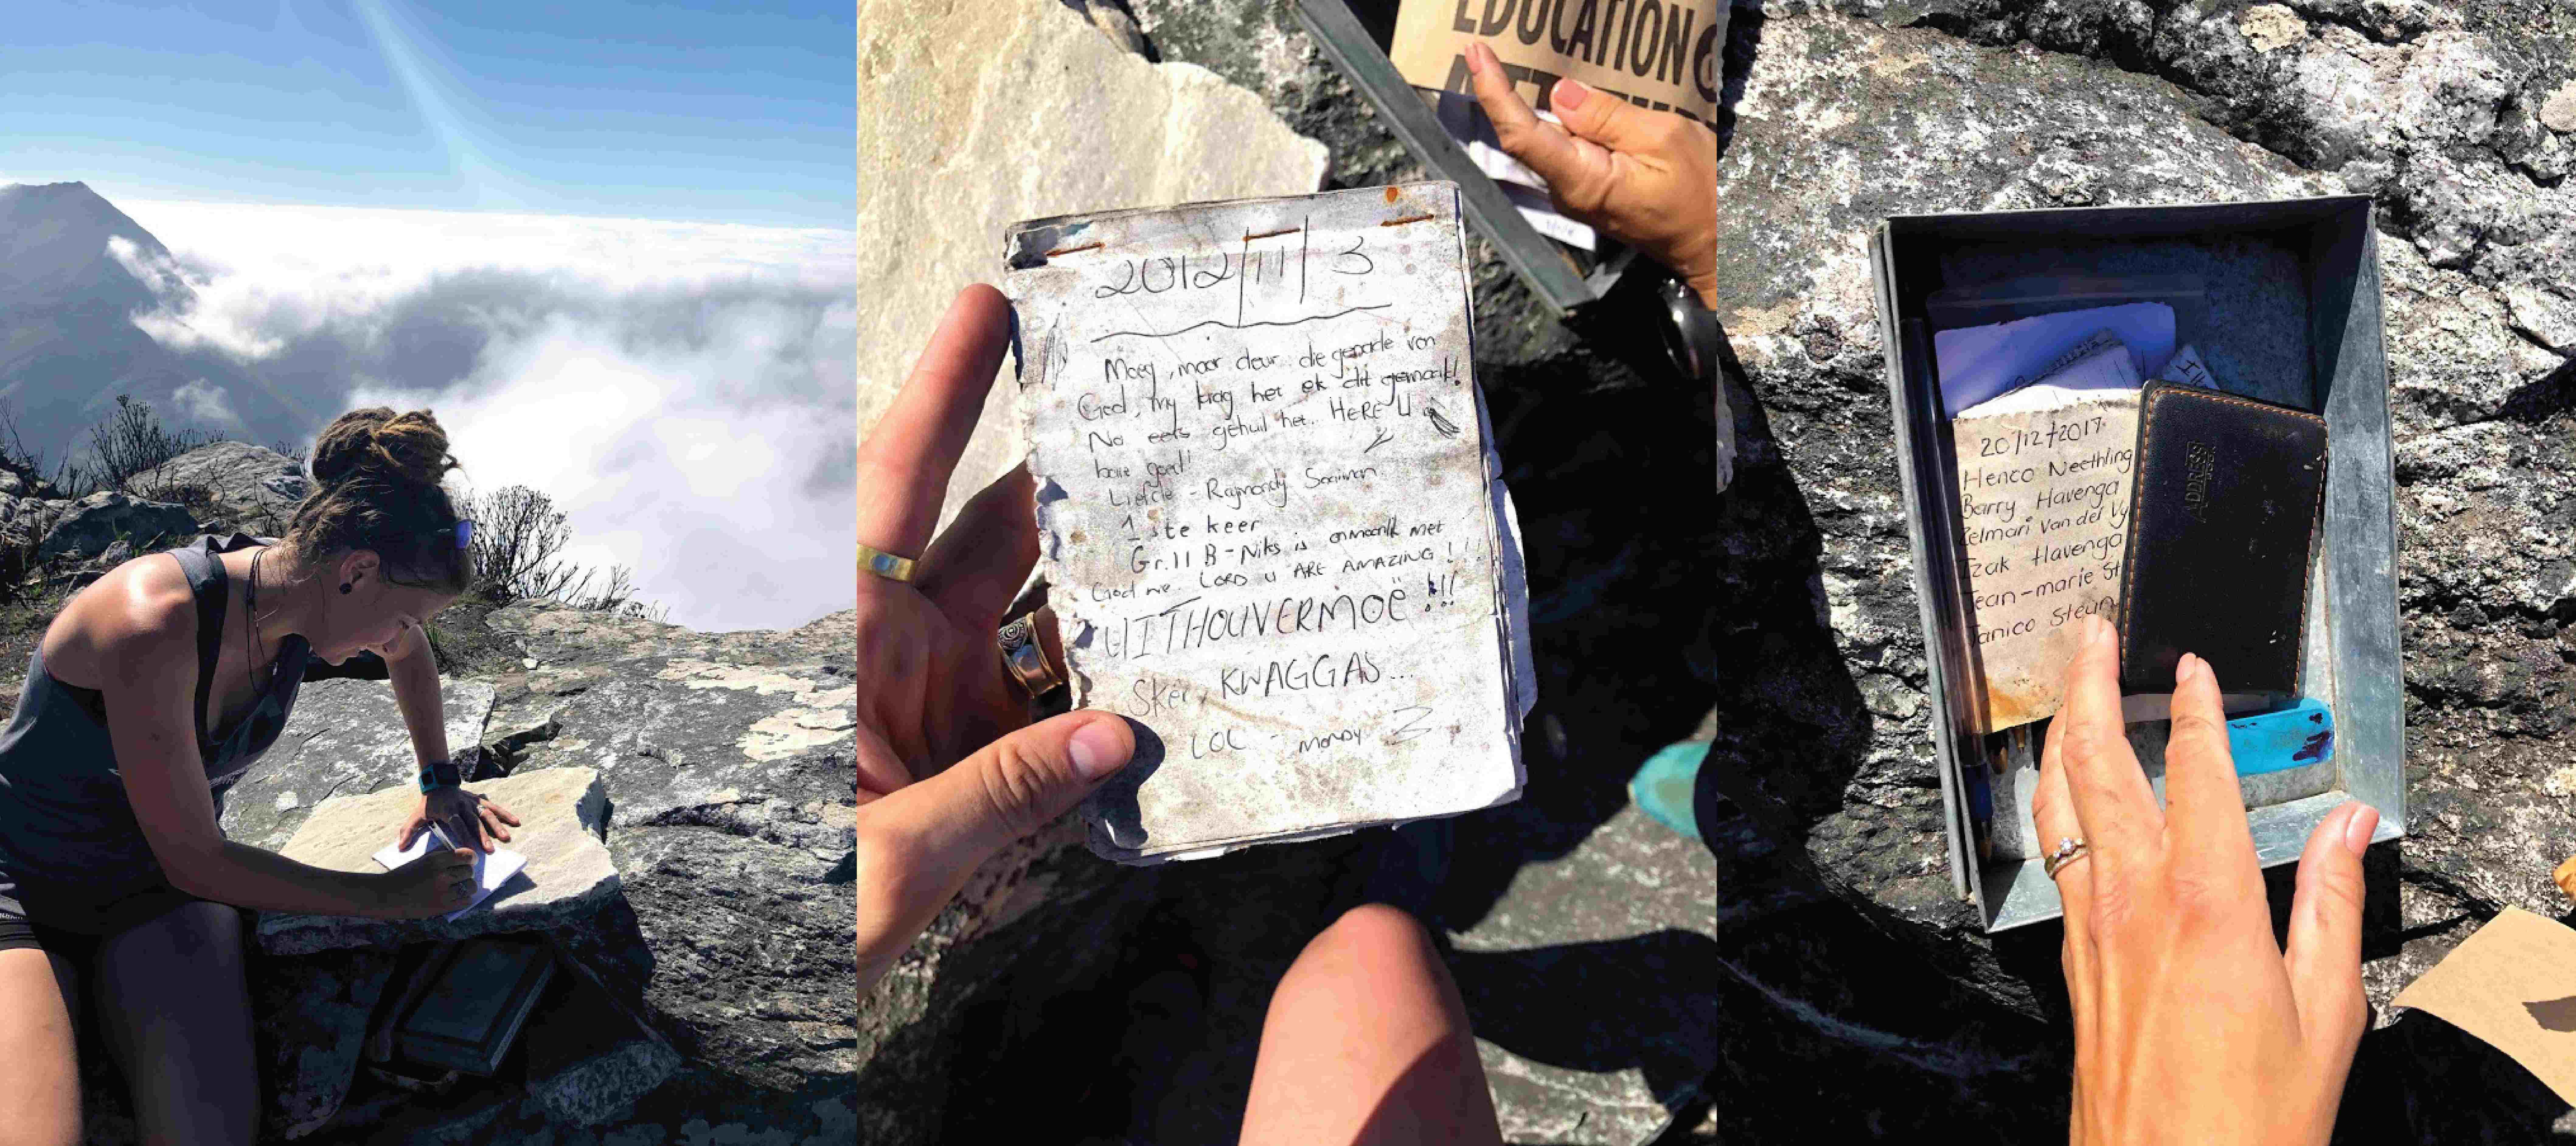 EDUCATION
2012/11/3
Moeg, maar deur die genade van
God, my krag het ek dit gemaak!
No eers gehuil het. HERE U
baie goed!
Liefde - Raymondy
1ste keer
Gr.11 B - Niks is onmoontlik met
God nie. LORD U ARE AMAZING!!!
UITHOUVERMOË!!!
Sker, KWAGGAS...
LOL - mondy
20/12/2017
Henco Neethling
Barry Havenga
Zelmari van der Vy
Izak Havenga
Jean-marie St
Janico Steun
ADDRESS